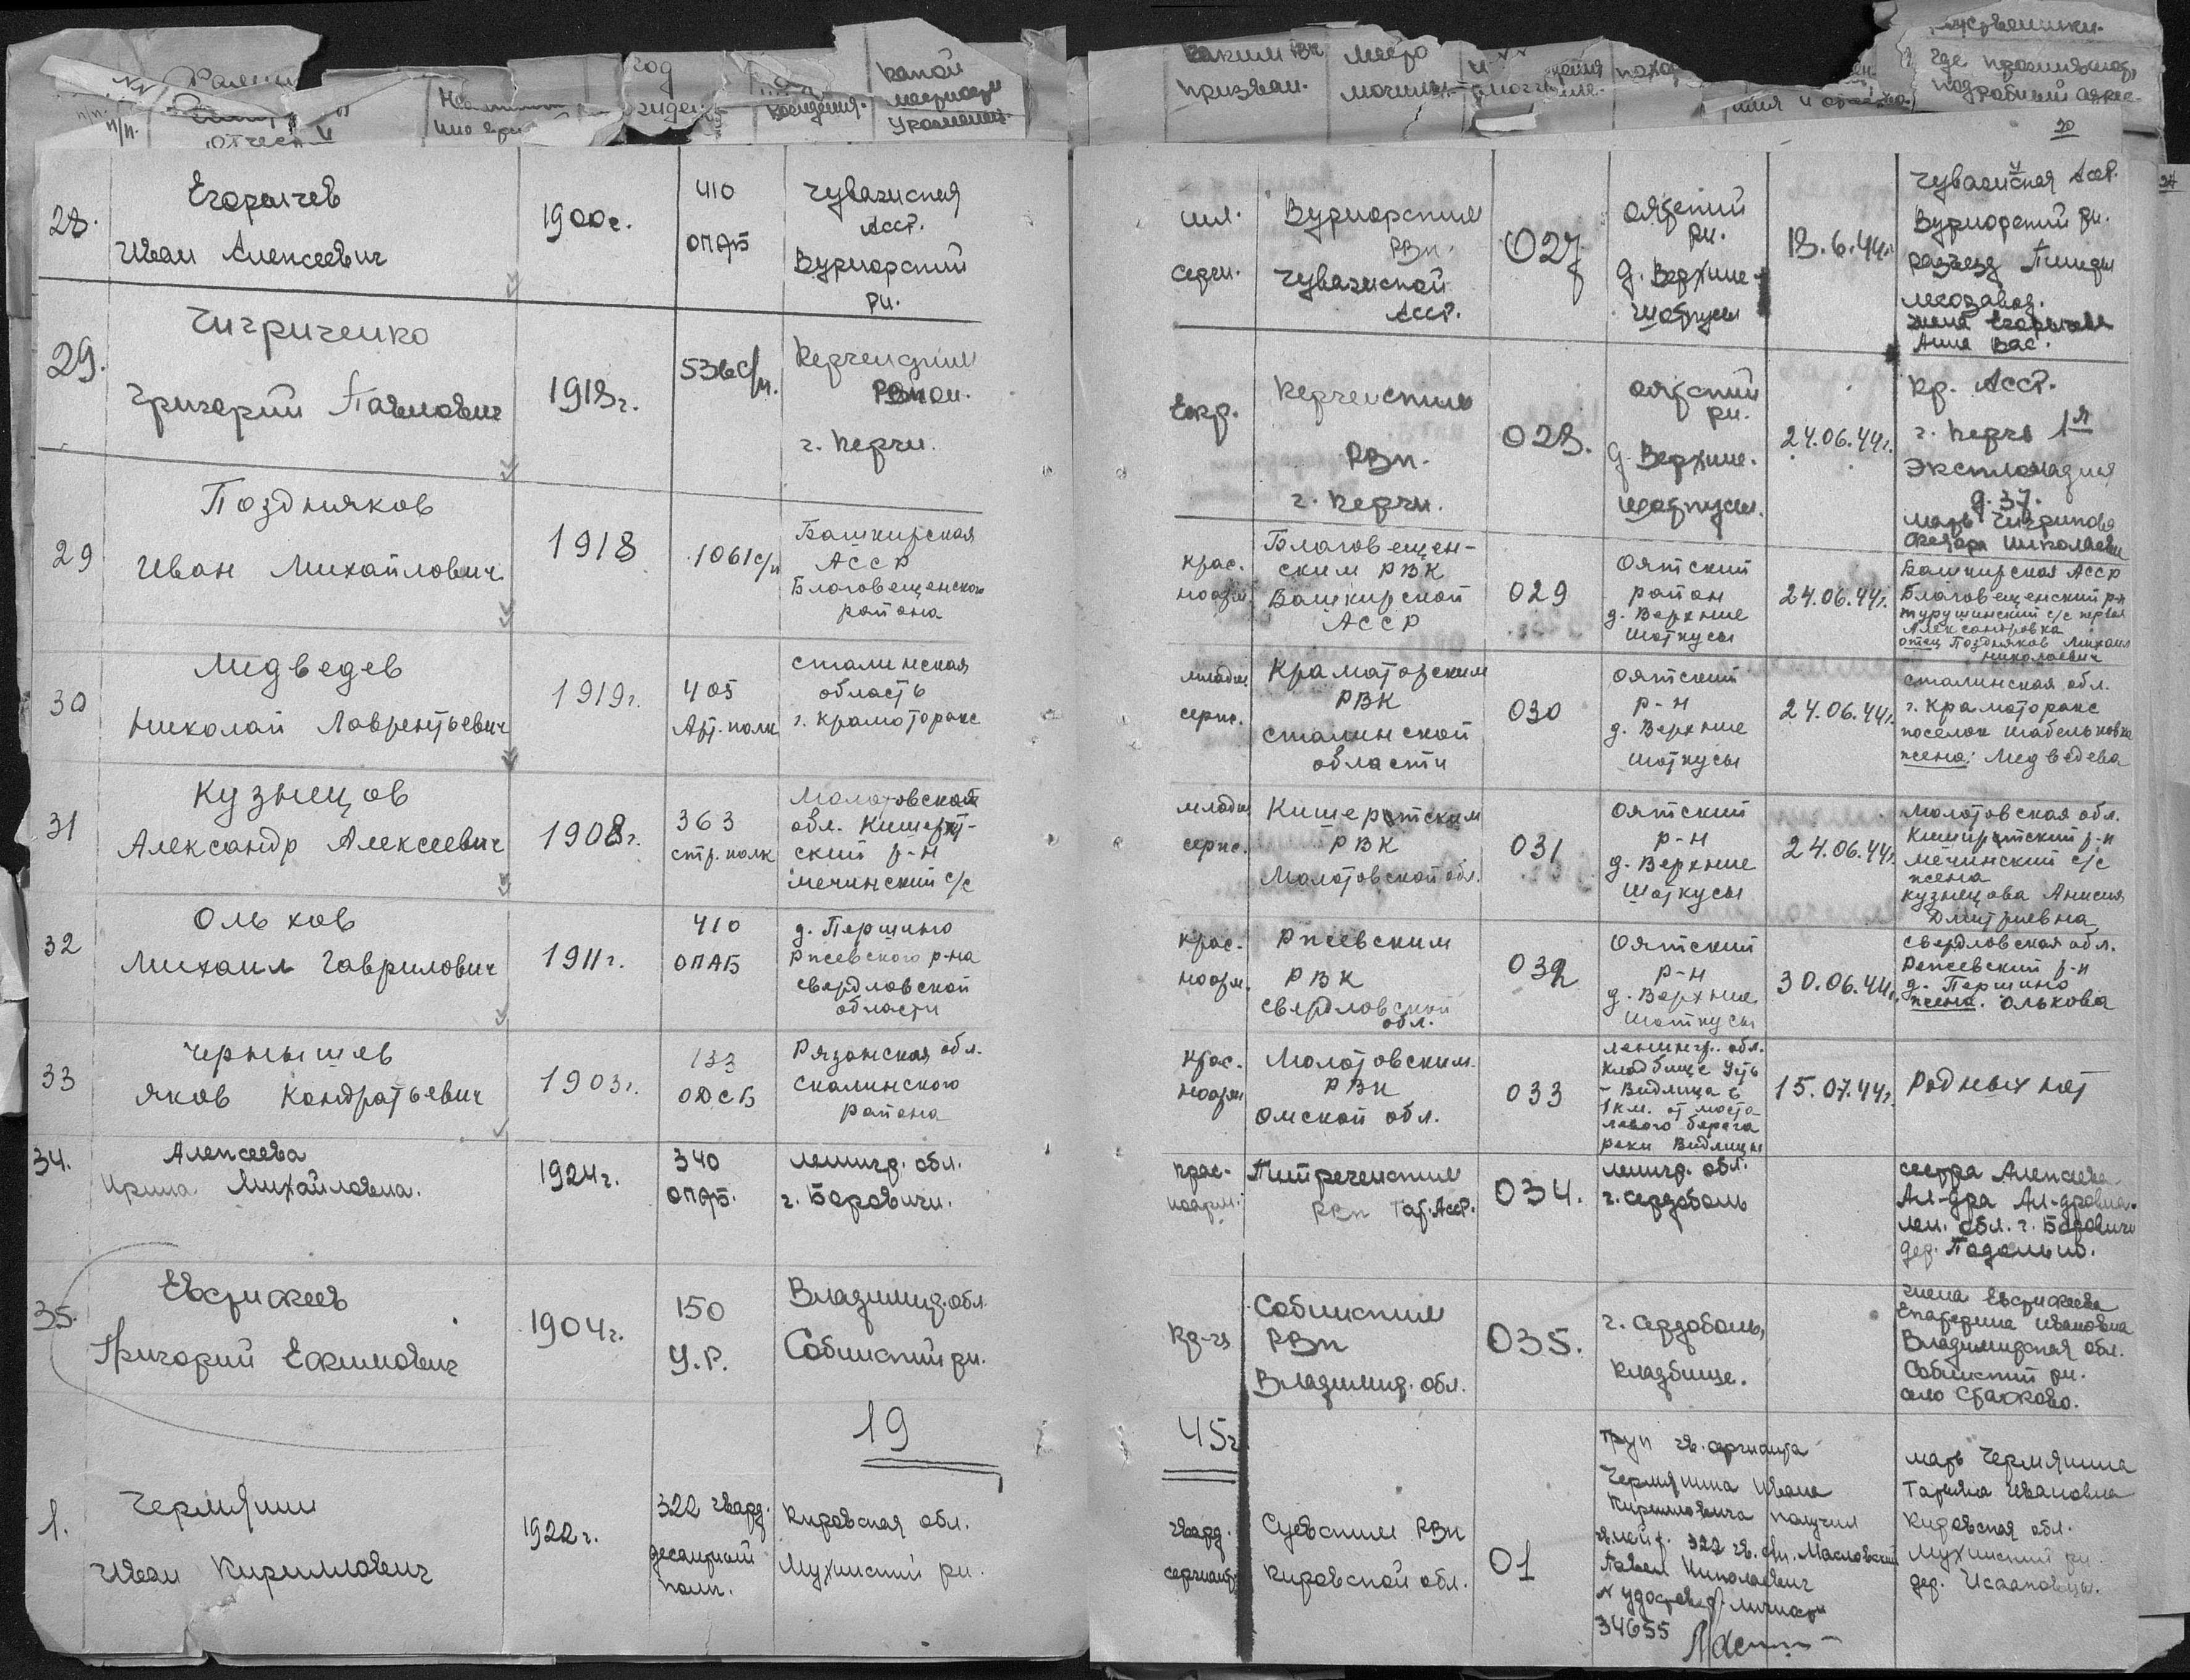 п/п.
отчест
год
рождения.
какой
местности
уроженец.
каким РВК
призван.
место
могилы
где проживает,
подробный адрес.
20
28.
Егорычев
Иван Алексеевич
1900г.
410
ОПАБ
Чувашская
АССР.
Вурнарский
рн.
сил.
сержн.
Вурнарским
РВк.
Чувашской
АССР.
027
Оятский
рн.
д. Верхние-
Шоткусы
18.6.44г.
Чувашская АССР.
Вурнарский рн.
разъезд Пинеры
лесозавод.
жена Егорычева
Анна Вас.
29.
Чигриченко
Григорий Павлович
1918г.
536 с/п.
Керченский
район.
г. Керчи.
Ефр.
Керченским
РВк.
г. Керчи.
028.
Оятский
рн.
д. Верхние.
Шоткусы.
24.06.44г.
Кр. АССР.
г. Керчь 1я
д. 37.
мать
29
Поздняков
Иван Михайлович.
1918
1061 с/п
Башкирская
АССР
Благовещенского
района
крас-
ноарм.
Благовещен-
ским РВК
Башкирской
АССР
029
Оятский
район
д. Верхние
Шоткусы
24.06.44г.
Башкирская АССР
Благовещенский р-н
турушинский с/с первая
Александровка
отец Поздняков Михаил
Николаевич
30
Медведев
Николай Лаврентьевич
1919г.
405
Арт. полк
Сталинская
область
г. Краматорске
младш.
серж.
Краматорским
РВК
Сталинской
области
030
Оятский
р-н
д. Верхние
Шоткусы
24.06.44г.
Сталинская обл.
г. Краматорске
поселок Шабельковка
жена: Медведева
31
Кузнецов
Александр Алексеевич
1908г.
363
стр. полк
Молотовской
обл. Кишерт-
ский р-н
мечинский с/с
младш.
серж.
Кишертским
РВК
Молотовской обл.
031
Оятский
р-н
д. Верхние
Шоткусы
24.06.44г.
Молотовская обл.
Кишертский р-н
мечинский с/с
жена
Кузнецова Анисия
Дмитриевна
32
Ольков
Михаил Гаврилович
1911г.
410
ОПАБ
д. Першино
Режевского р-на
Свердловской
области
крас-
ноарм.
Режевским
РВК
Свердловской
обл.
032
Оятский
р-н
д. Верхние
Шоткусы
30.06.44г.
Свердловская обл.
Режевский р-н
д. Першино
жена. Олькова
33
Чернышев
Яков Кондратьевич
1903г.
133
ОДСБ
Рязанская обл.
Скапинского
района
крас-
ноарм
Молотовским
РВК
Омской обл.
033
Ленингр. обл.
кладбище Усть
- Видлица в
1 км. от моста
левого берега
реки Видлицы
15.07.44г.
Родных нет
34.
Алексеева
Ирина Михайловна.
1924г.
340
ОПАБ.
Ленигр. обл.
г. Боровичи.
крас-
ноарм.
Питреченским
РВк Тат. АССР.
034.
Ленигр. обл.
г. Сердоболь
сестра Алексеева
Ал-дра Ал-дровна.
Лен. обл. г. Боровичи
дер. Подольно.
35.
Евстифеев
Григорий Ефимович
1904г.
150
У.Р.
Владимир. обл.
Собинский рн.
Кр-ц
Собинским
РВк
Владимир. обл.
035.
г. Сердоболь,
кладбище.
жена Евстифеева
Екатерина Ивановна
Владимирская обл.
Собинский рн.
село Ставрово.
19
45г
1.
Чермянин
Иван Кириллович
1922г.
322 гвард.
десантный
полк.
Кировская обл.
Мухинский рн.
гвард.
сержант
Суевским РВк
Кировской обл.
01
Труп гв. сержанта
Чермянина Ивана
Кирилловича получил
гв. лейт. 322 гв. сп. Масловский
Павел Николаевич
№ удостовер. личности
34655
мать Чермянина
Татьяна Ивановна
Кировская обл.
Мухинский рн.
дер. Исааковцы.